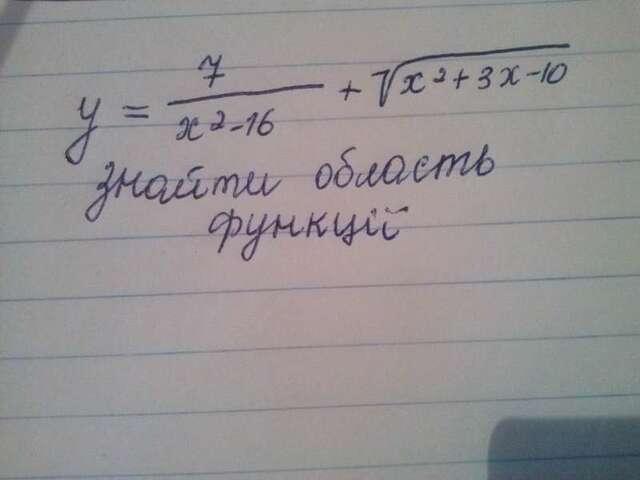 y = 7/(x²-16) + √(x²+3x-10)
знайти область
функції